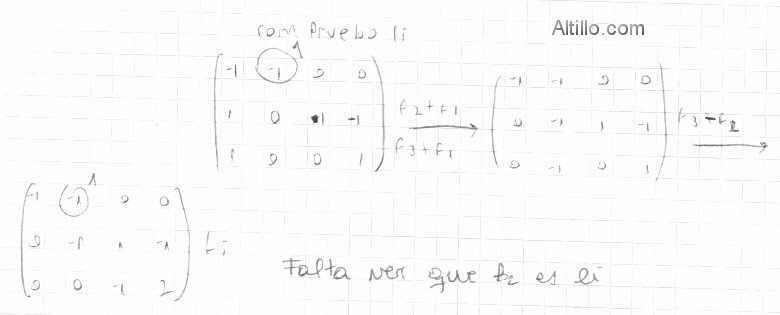 comprueba li
Altillo.com
-1 -1 1 0 0
1 0 1 -1
1 0 0 1
F2+F1
F3+F1
-1 -1 0 0
0 -1 1 -1
0 -1 0 1
F3-F2
-1 -1 1 0 0
0 -1 1 -1
0 0 -1 2
Li
Falta ver que B2 es li